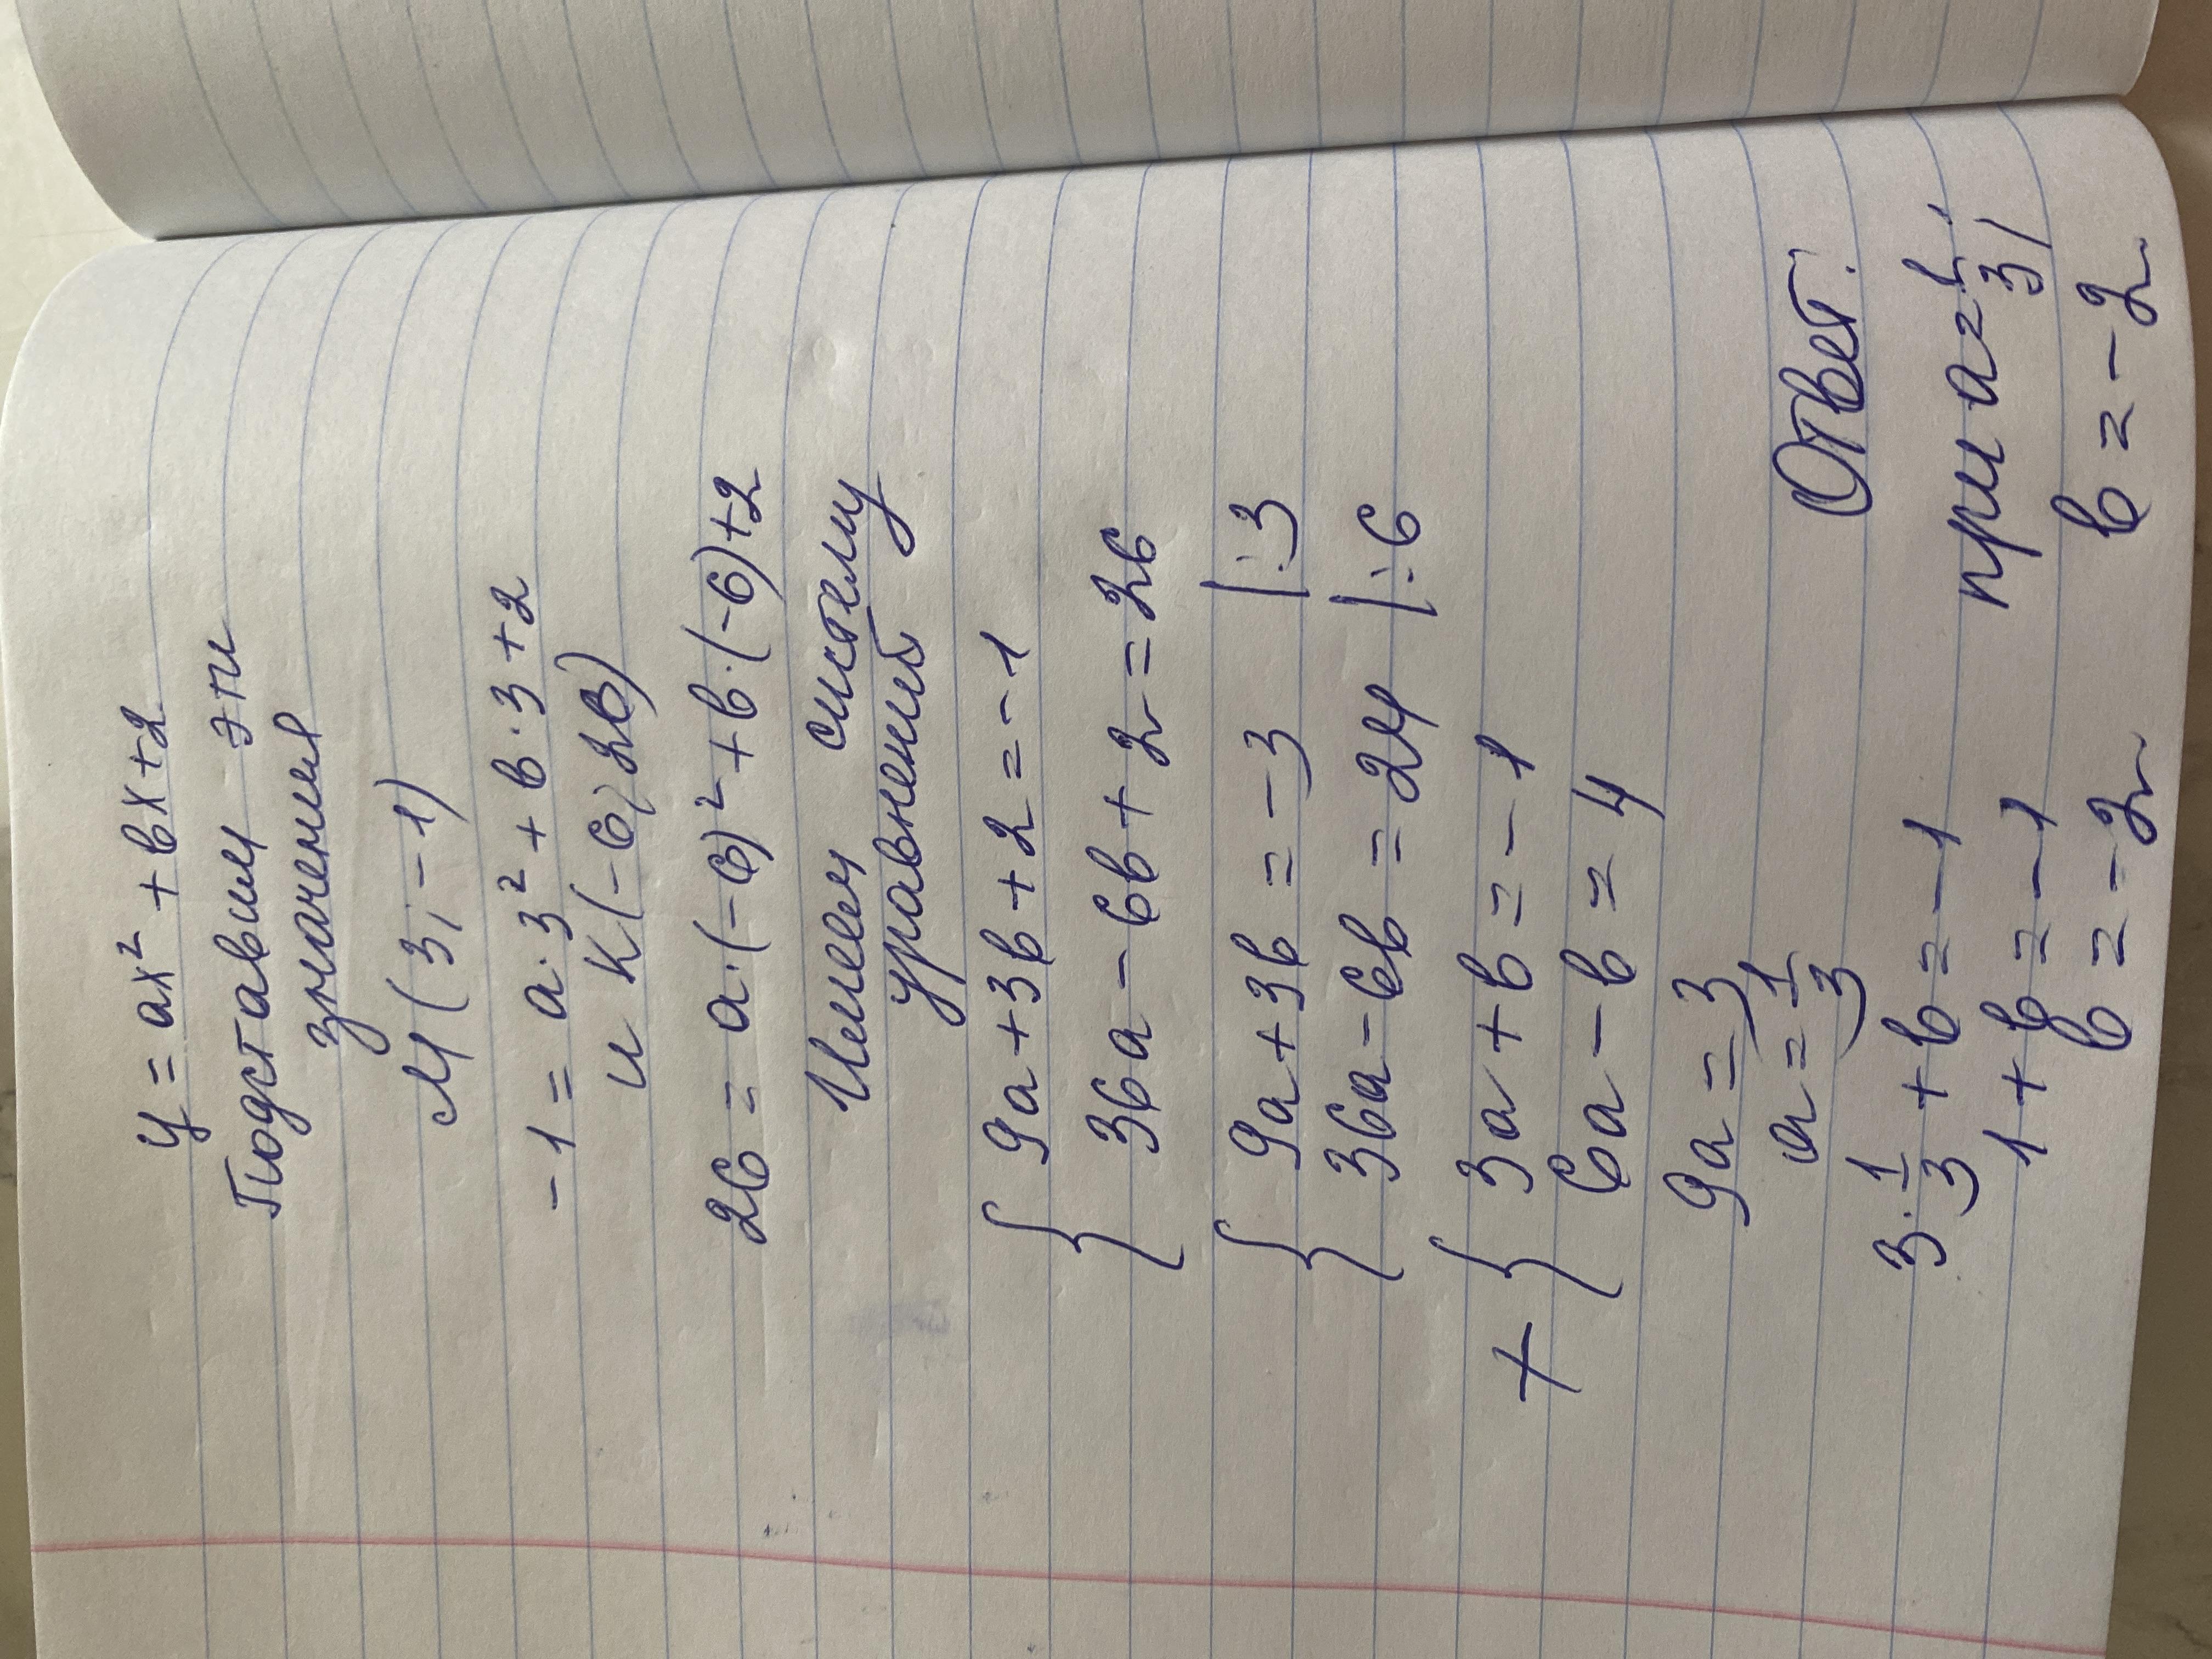 y = ax² + bx + 2
Подставим эти
значения
М (3; -1)
-1 = a · 3² + b · 3 + 2
и К (-6; 26)
26 = a · (-6)² + b · (-6) + 2
Имеем систему
уравнений
{ 9a + 3b + 2 = -1
36a - 6b + 2 = 26
{ 9a + 3b = -3 | : 3
36a - 6b = 24 | : 6
+ { 3a + b = -1
6a - b = 4
9a = 3
a = 1/3
3 · 1/3 + b = -1
1 + b = -1
b = -2
Ответ:
при a = 1/3;
b = -2